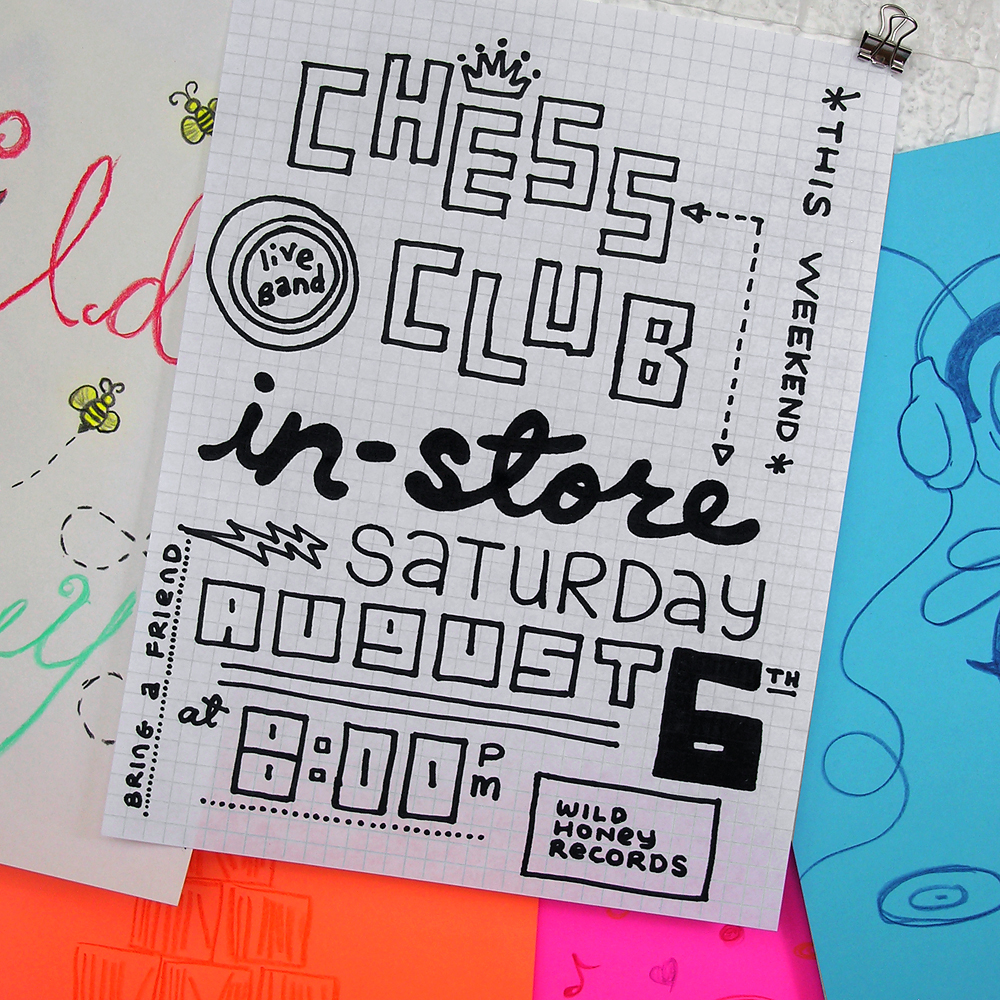 CHESS
CLUB
live
Band
*THIS WEEKEND*
in-store
SaTURDay
AUGUST 6TH
at 8:00 Pm
BRING a FRIEND
WILD
HONEY
RECORDS
ild
ey